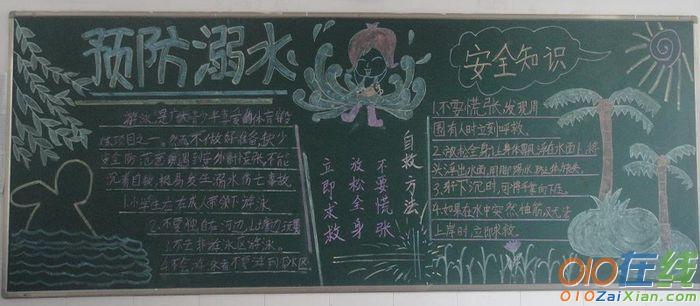 预防溺水
游泳是广大青少年喜爱的体育锻
炼项目之一。然而不做好准备、缺少
安全防范意识,遇到意外时慌张、不能
沉着自救,极易发生溺水伤亡事故。
1.小学生应在成人带领下游泳
2.不要独自在河边、山塘边玩耍
3.不去非游泳区游泳。
4.不会游泳者不要游到深水区
自救方法
不要慌张
放松全身
立即求救
安全知识
1.不要慌张,发现周
围有人时立刻呼救。
2.放松全身,让身体飘浮在水面上,将
头浮出水面,用脚踢水
3.身体下沉时,可将手掌向下压。
4.如果在水中突然抽筋,又无法
上岸时,立即求救。
010在线
010ZaiXian.com